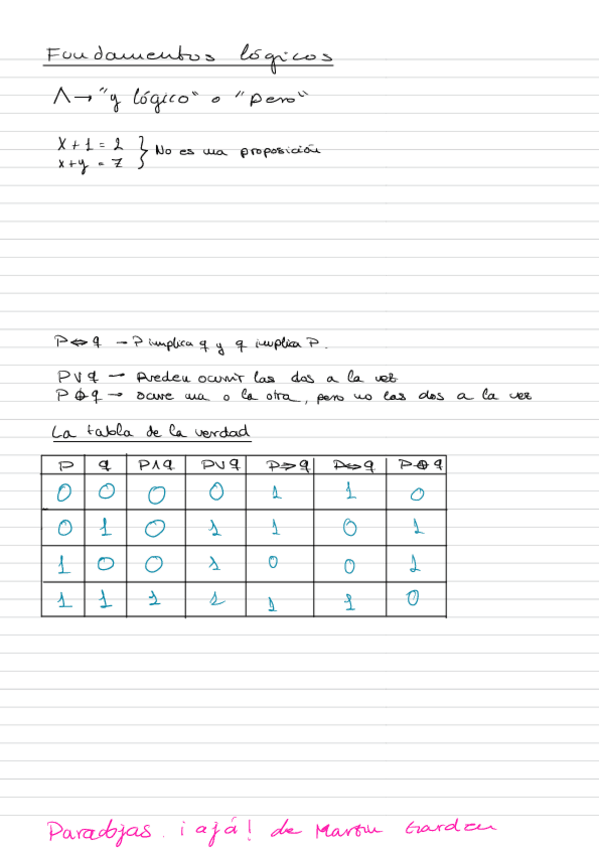 Fundamentos lógicos
Λ → "y lógico" o "pero"
x + 1 = 2
x + y = 7 } No es una proposición
P ⇔ q → P implica q y q implica P.
P ∨ q → Pueden ocurrir las dos a la vez
P ⊕ q → ocurre una o la otra, pero no las dos a la vez
La tabla de la verdad
P q P∧q P∨q P⇒q P⇔q P⊕q
0 0 0 0 1 1 0
0 1 0 1 1 0 1
1 0 0 1 0 0 1
1 1 1 1 1 1 0
Paradojas. ¡ajá! de Martin